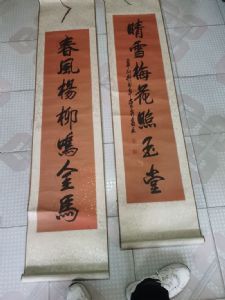 晴雪梅花照玉堂
春風楊柳鳴金馬